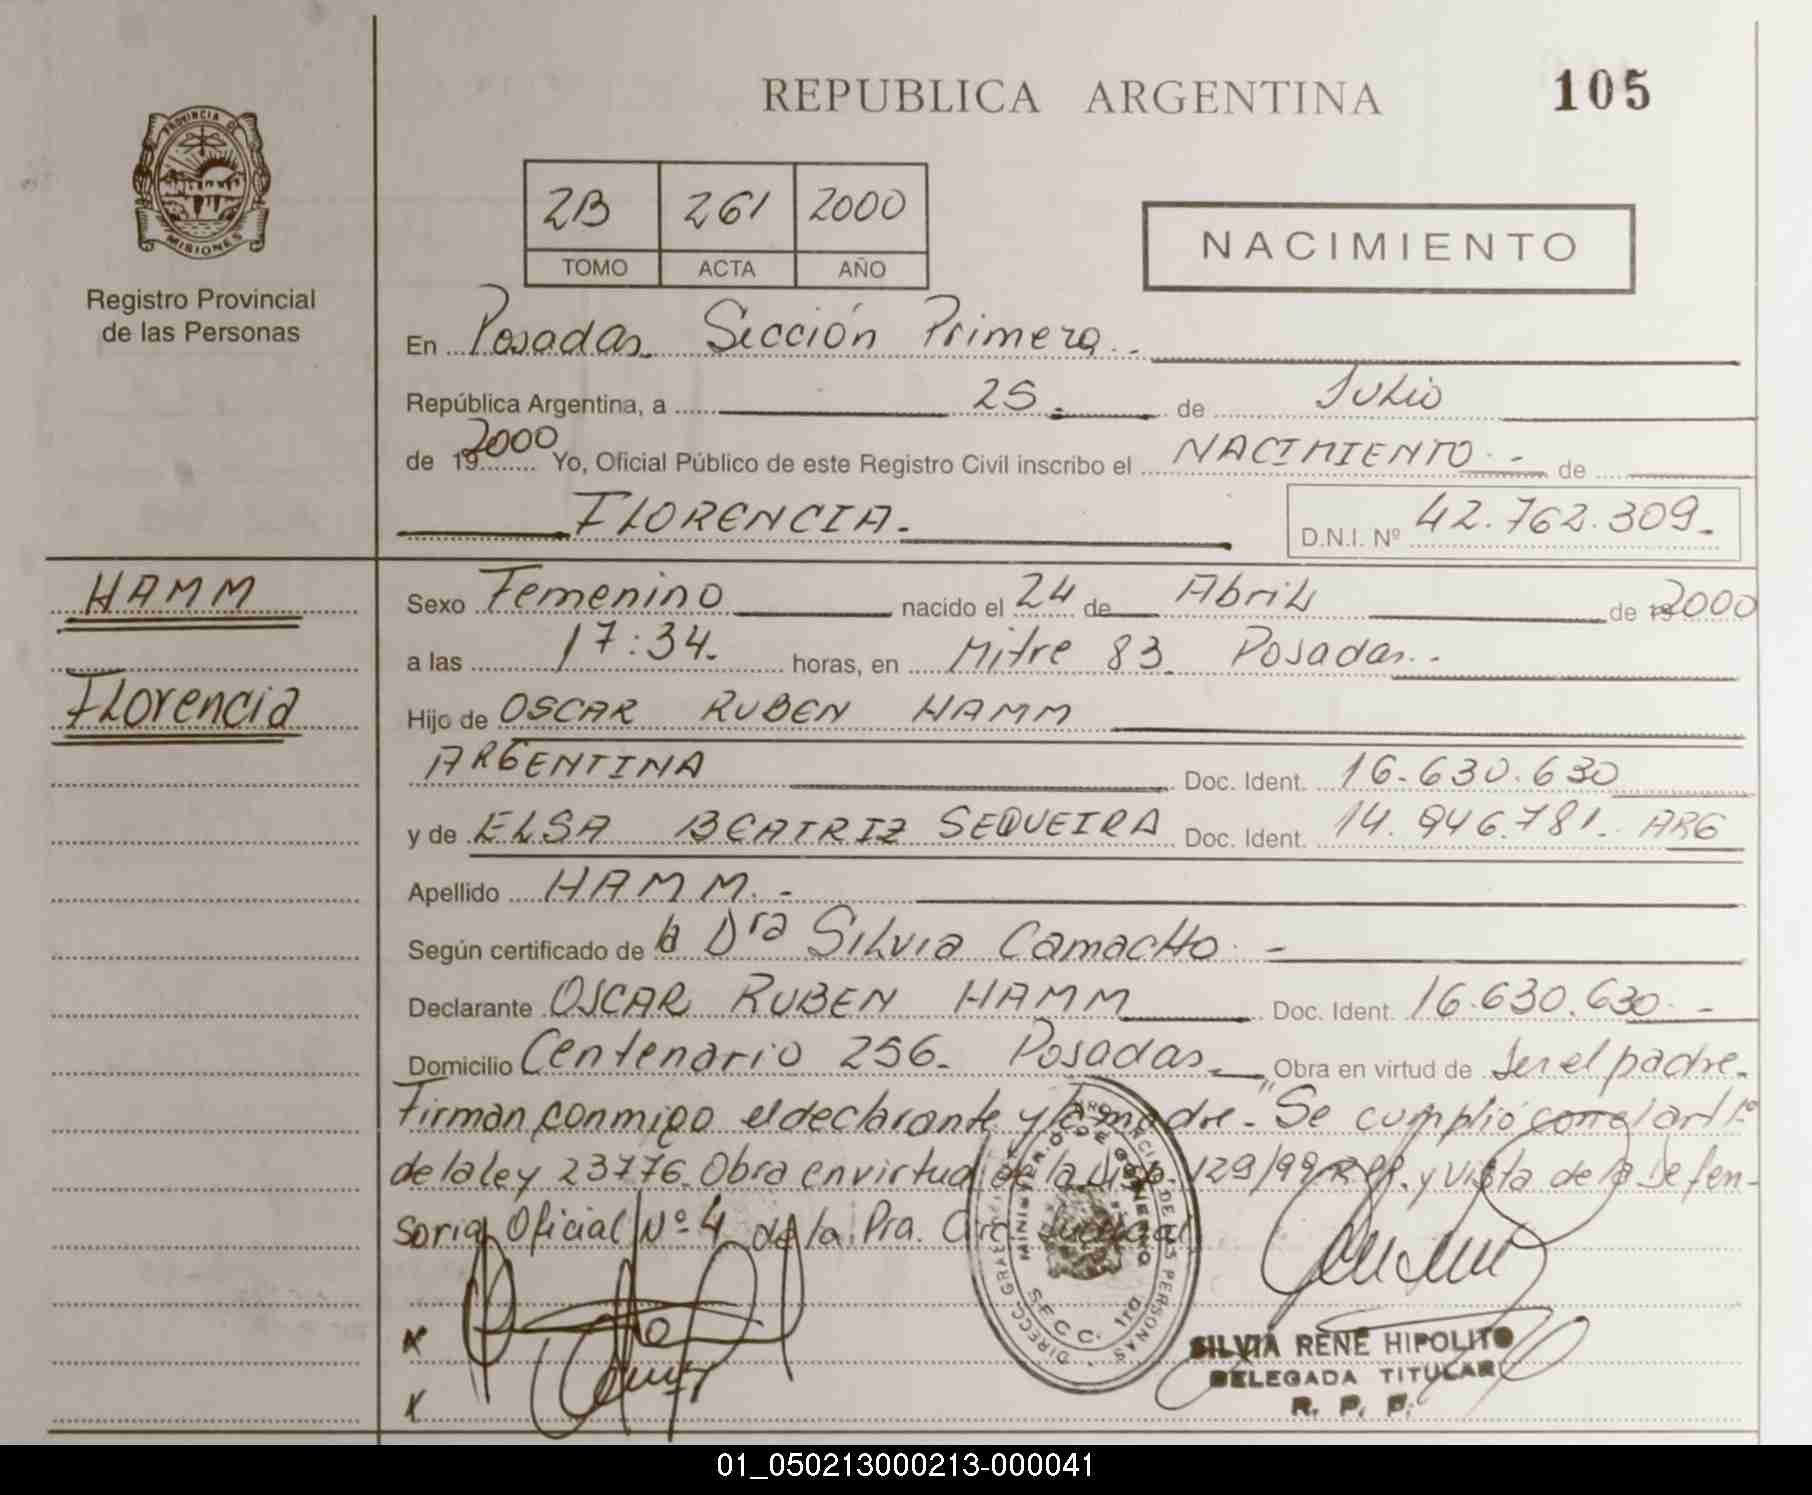 REPUBLICA ARGENTINA
105
PROVINCIA DE
MISIONES
Registro Provincial
de las Personas
2B 261 2000
TOMO ACTA AÑO
NACIMIENTO
En Posadas. Sección Primera.-
República Argentina, a 25.- de Julio
de 19 2000 Yo, Oficial Público de este Registro Civil inscribo el NACIMIENTO.- de
FLORENCIA.- D.N.I. Nº 42.762.309.-
HAMM
Florencia
Sexo Femenino nacido el 24 de Abril de 19 2000
a las 17:34. horas, en Mitre 83. Posadas.-
Hijo de OSCAR RUBEN HAMM
ARGENTINA Doc. Ident. 16.630.630
y de ELSA BEATRIZ SEQUEIRA Doc. Ident. 14.946.781. ARG
Apellido HAMM.-
Según certificado de la Dra Silvia Camacho.-
Declarante OSCAR RUBEN HAMM Doc. Ident. 16.630.630.-
Domicilio Centenario 256. Posadas.- Obra en virtud de Ser el padre.-
Firman conmigo el declarante y la madre.- "Se cumplió con el art 1º
de la ley 23776. Obra en virtud de la Disp. 129/99 RPP. y Vista de la Defen-
soria Oficial Nº 4 de la Pra. Circ. Judicial
MINISTERIO DE GOBIERNO
SECC. 1ra
DIRECC. GRAL. REG. PROVINCIAL DE LAS PERSONAS
x
x
SILVIA RENE HIPOLITO
DELEGADA TITULAR
R. P. P.
01_050213000213-000041